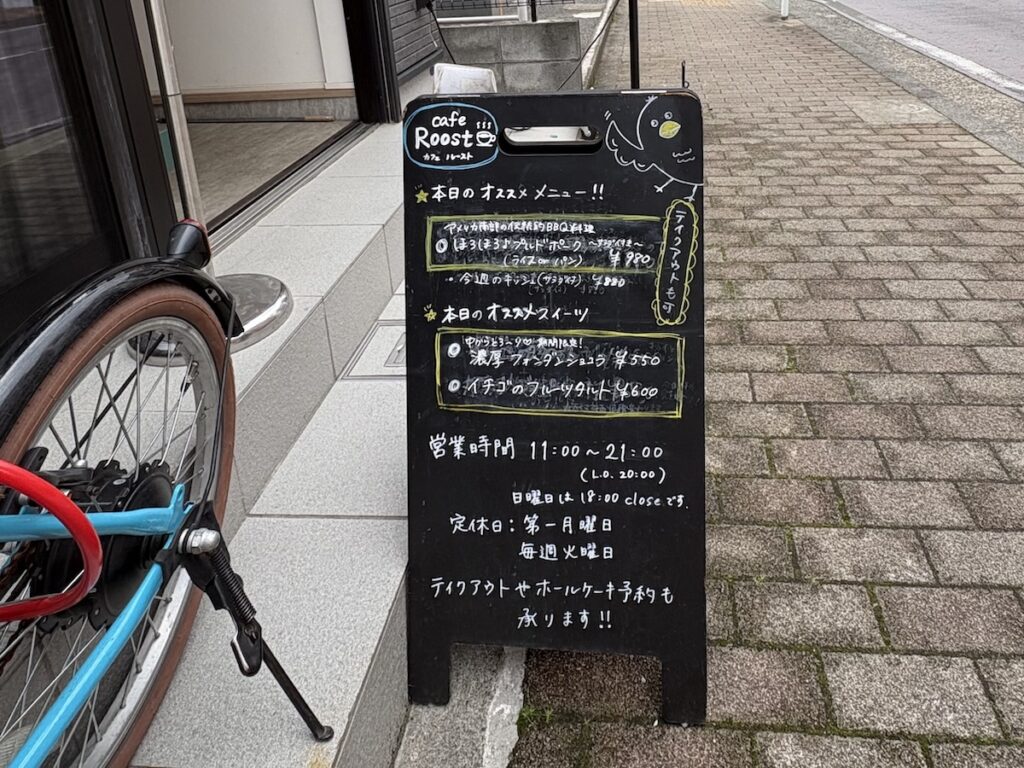 cafe
Roost
カフェ ルースト
本日のオススメメニュー!!
アメリカ南部の伝統的BBQ料理
ほろほろ♪プルドポーク ～サラダ付き～
(ライス or パン) ¥980
今週のキッシュ(サラダ付) ¥880
テイクアウトも可
本日のオススメスイーツ
中からとろ～り♡ 期間限定!
濃厚フォンダンショコラ ¥550
イチゴのフルーツタルト ¥600
営業時間 11:00～21:00
(L.O. 20:00)
日曜日は 18:00 closeです.
定休日: 第一月曜日
毎週火曜日
テイクアウトやホールケーキ予約も
承ります!!